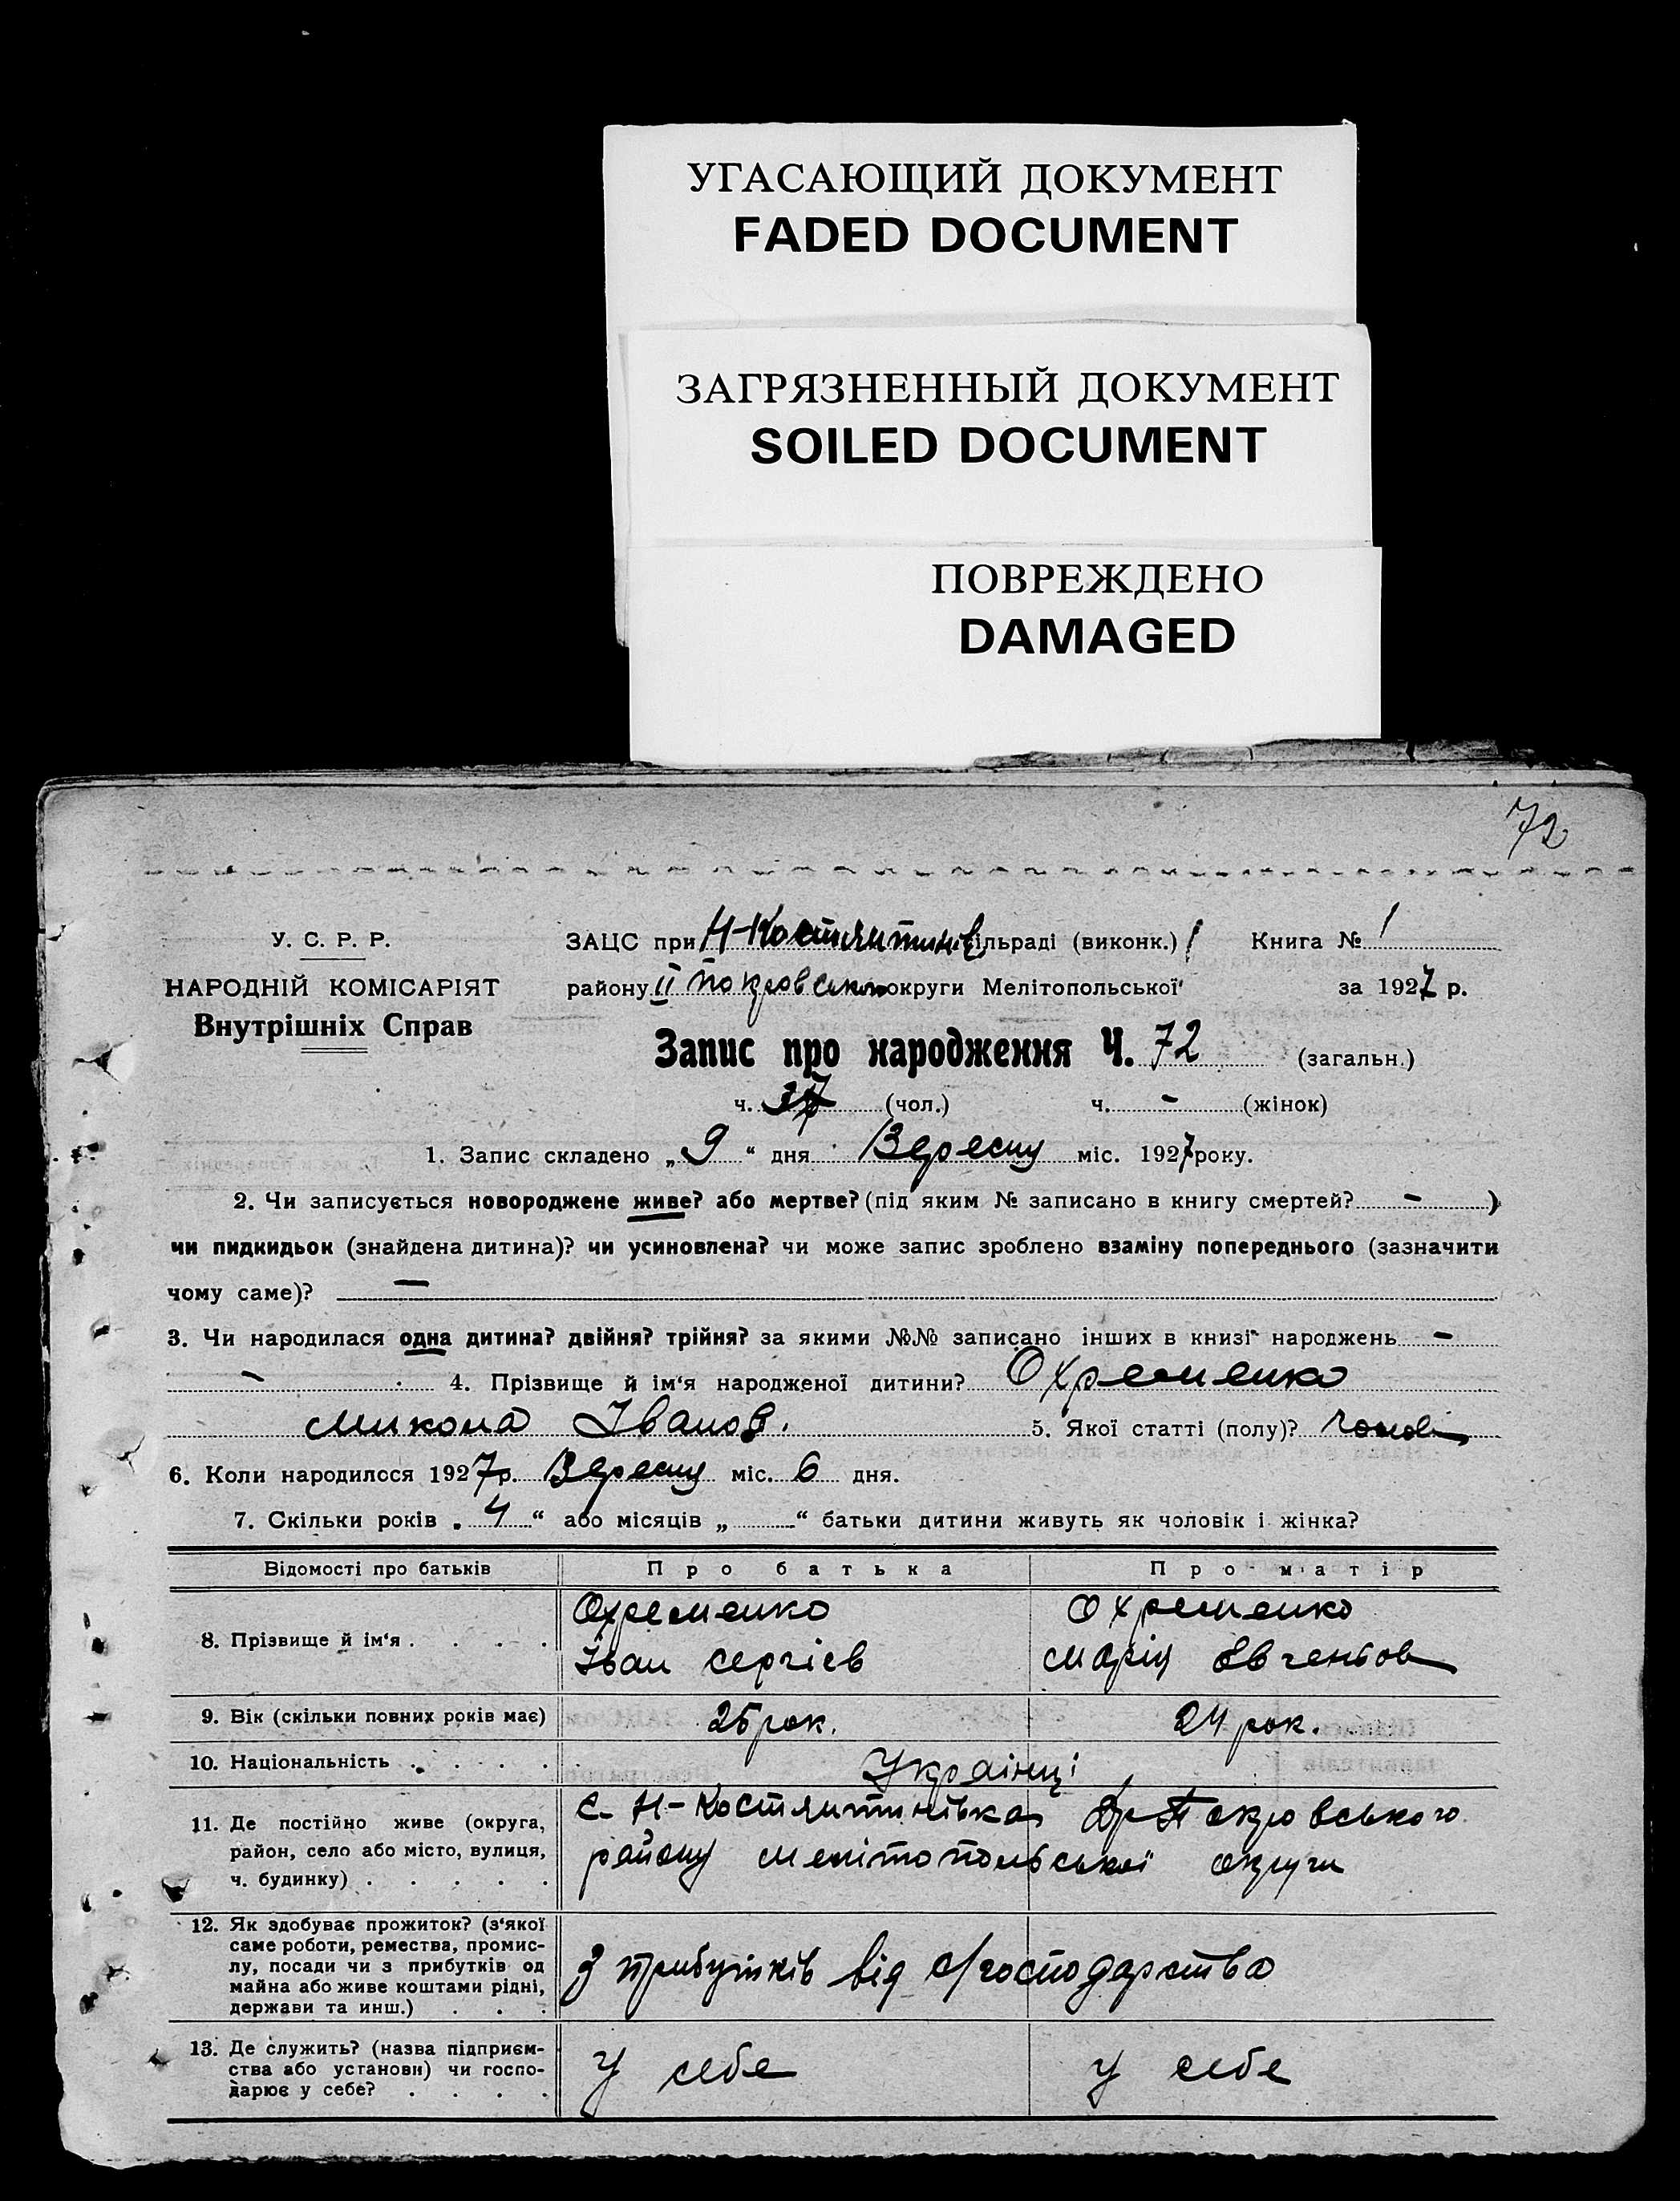 УГАСАЮЩИЙ ДОКУМЕНТ
FADED DOCUMENT
ЗАГРЯЗНЕННЫЙ ДОКУМЕНТ
SOILED DOCUMENT
ПОВРЕЖДЕНО
DAMAGED
72
У. С. Р. Р.
НАРОДНІЙ КОМІСАРІЯТ
Внутрішніх Справ
ЗАЦС при Н-Костянтинів сільраді (виконк.) Книга № 1
району ІІ Покровськ округи Мелітопольської за 1927 р.
Запис про народження Ч. 72 (загальн.)
ч. 37 (чол.) ч. - (жінок)
1. Запис складено „ 9 “ дня Вересня міс. 1927 року.
2. Чи записується новороджене живе? або мертве? (під яким № записано в книгу смертей? - )
чи пидкидьок (знайдена дитина)? чи усиновлена? чи може запис зроблено взаміну попереднього (зазначити
чому саме)? —
3. Чи народилася одна дитина? двійня? трійня? за якими №№ записано інших в книзі народжень -
- 4. Прізвище й ім‘я народженої дитини? Охременко
Микола Іванов. 5. Якої статті (полу)? чолов
6. Коли народилося 1927 р. Вересня міс. 6 дня.
7. Скільки років „ 4 “ або місяців „ “ батьки дитини живуть як чоловік і жінка?
Відомості про батьків Про батька Про матір
8. Прізвище й ім‘я . . . . Охременко Охременко
Іван Сергієв Марія Євгеньов
9. Вік (скільки повних років має) 25 рок. 24 рок.
10. Національність . . . . . Українці
11. Де постійно живе (округа, район, село або місто, вулиця, ч. будинку) . . . . .
с. Н-Костянтинівка Покровського
району Мелітопольської округи
12. Як здобуває прожиток? (з‘якої саме роботи, ремества, промислу, посади чи з прибутків од майна або живе коштами рідні, держави та инш.) . . .
З прибутків від с/господарства
13. Де служить? (назва підприємства або установи) чи господарює у себе? . . . .
У себе У себе